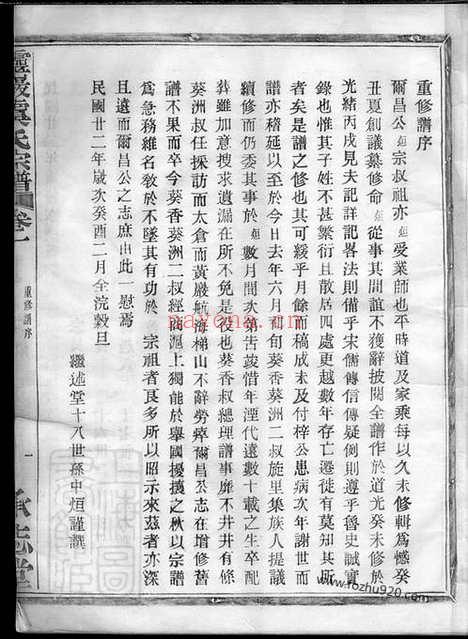 重修譜序
爾昌公烜宗叔祖亦烜受業師也平時道及家乘每以久未修輯為憾癸
丑夏創議纂修命烜從事其間誼不獲辭披閱全譜作於道光癸未修於
光緒丙戌見夫記詳記畧法則備乎宋儒傳信傳疑例則遵乎魯史誠實
錄也獨惟其子姓不甚繁衍且散居四處更越數年存亡遷徙有莫知其所
者矣是譜之修也其可緩乎月餘而稿成未及付梓公患病次年謝世而
譜亦稽延以至於今日去年六月初旬葵香葵洲二叔旋里集族人提議
續修而仍委其事於烜數月間次第告竣惜年湮代遠數十載之生卒配
葬雖加意搜求遺漏在所不免是役也葵香叔總理譜事靡不井井有條
葵洲叔任採訪而太倉而黃嚴航海梯山不辭勞瘁爾昌公志在增修舊
譜不果而卒今葵香葵洲二叔經商滬上獨能於舉國擾攘之秋以宗譜
為急務雖名教於不墜其有功於　宗祖者良多所以昭示來茲者亦深
且遠而爾昌公之志庶由此一慰焉
民國廿二年歲次癸酉二月全浣穀旦
繼述堂十八世孫中烜謹譔
靈嚴虞氏宗譜
卷一
重修譜序
一
承志堂
nayona.cn
www.fozhu920.com